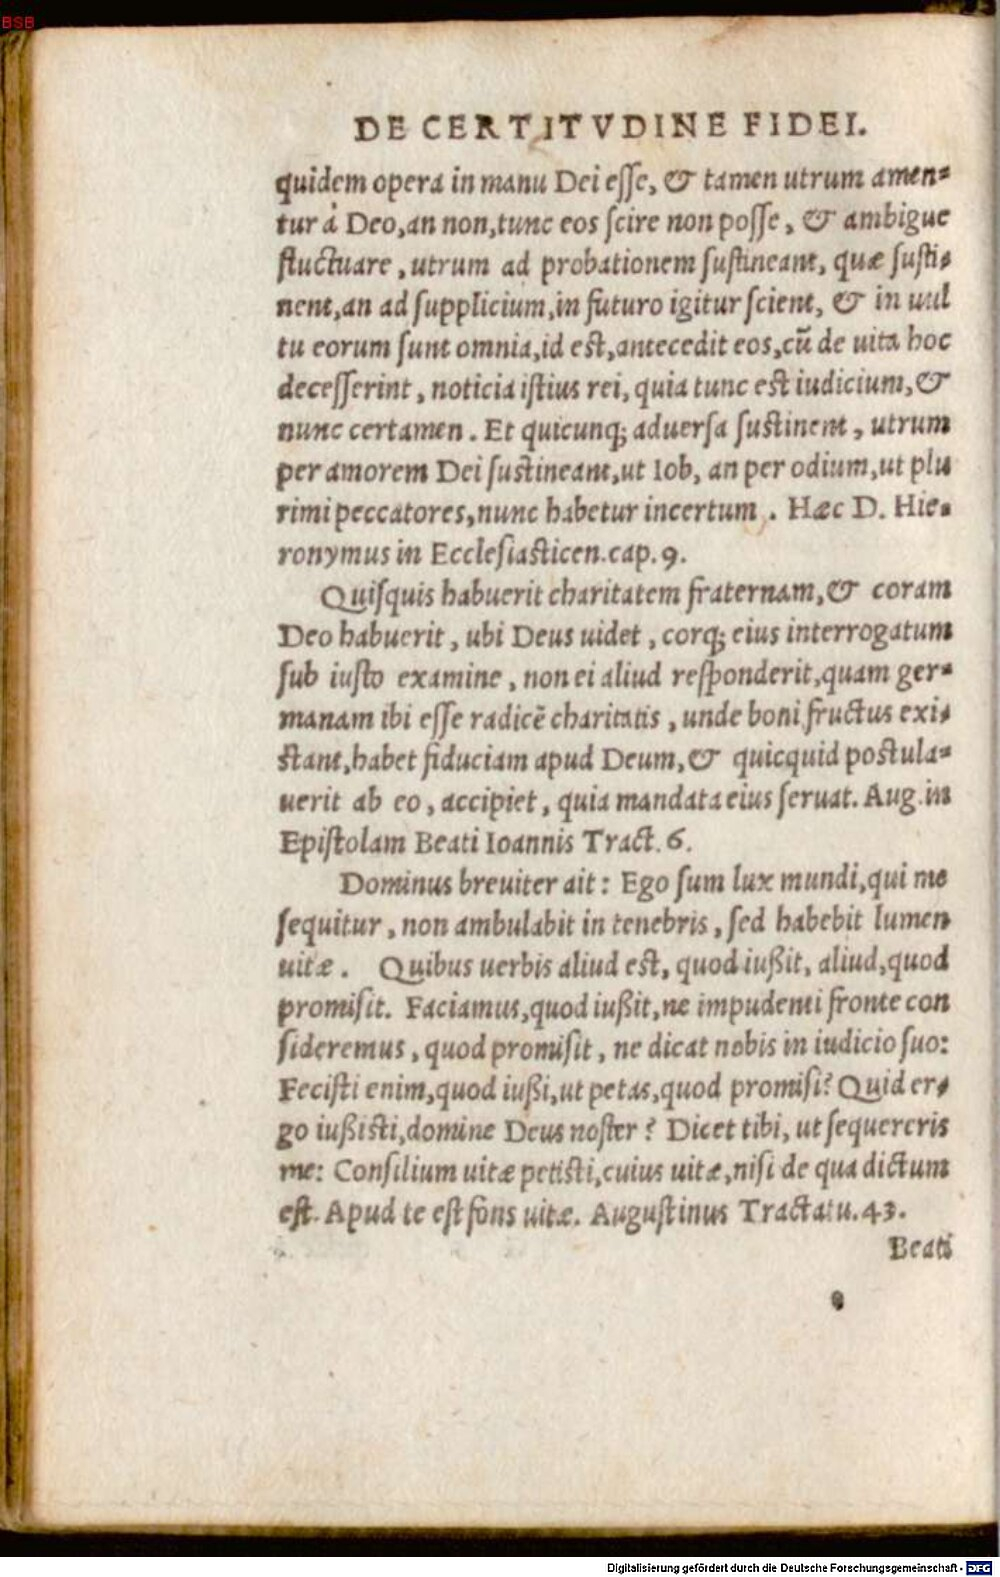 BSB
DE CERTITVDINE FIDEI.
quidem opera in manu Dei eſſe, & tamen utrum amen-
tur à Deo, an non, tunc eos ſcire non poſſe, & ambigue
fluctuare, utrum ad probationem ſuſtineant, quæ ſuſti-
nent, an ad ſupplicium, in futuro igitur ſcient, & in uul
tu eorum ſunt omnia, id eſt, antecedit eos, cũ de uita hoc
deceſſerint, noticia iſtius rei, quia tunc eſt iudicium, &
nunc certamen. Et quicunq; aduerſa ſuſtinent, utrum
per amorem Dei ſuſtineant, ut Iob, an per odium, ut plu
rimi peccatores, nunc habetur incertum. Hæc D. Hie-
ronymus in Eccleſiaſticen. cap. 9.
Quiſquis habuerit charitatem fraternam, & coram
Deo habuerit, ubi Deus uidet, corq; eius interrogatum
ſub iuſto examine, non ei aliud reſponderit, quam ger-
manam ibi eſſe radicē charitatis, unde boni fructus exi-
ſtant, habet fiduciam apud Deum, & quicquid poſtula-
uerit ab eo, accipiet, quia mandata eius ſeruat. Aug. in
Epiſtolam Beati Ioannis Tract. 6.
Dominus breuiter ait: Ego ſum lux mundi, qui me
ſequitur, non ambulabit in tenebris, ſed habebit lumen
uitæ. Quibus uerbis aliud eſt, quod iußit, aliud, quod
promiſit. Faciamus, quod iußit, ne impudenti fronte con
ſideremus, quod promiſit, ne dicat nobis in iudicio ſuo:
Feciſti enim, quod iußi, ut petas, quod promiſi? Quid er-
go iußiſti, domine Deus noſter? Dicet tibi, ut ſequereris
me: Conſilium uitæ petiſti, cuius uitæ, niſi de qua dictum
eſt. Apud te eſt fons uitæ. Auguſtinus Tractatu. 43.
Beati
Digitalisierung gefördert durch die Deutsche Forschungsgemeinschaft - DFG